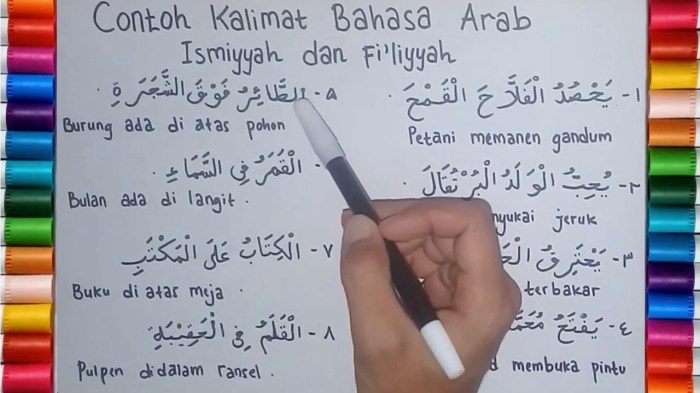 Contoh Kalimat Bahasa Arab
Ismiyyah dan Fi'liyyah
١- يَحْصُدُ الْفَلَّاحَ الْقَمْحَ .
Petani memanen gandum
٢- يُحِبُّ الْوَلَدُ الْبُرْتُقَالَ .
jeruk
٣- يَحْتَرِقُ
terbakar
٤- يَفْتَحُ
membuka pintu
٥- الطَّائِرُ فَوْقَ الشَّجَرَةِ .
Burung ada di atas pohon
الْقَمَرُ فِي السَّمَاءِ .
Bulan ada di langit .
٧- الْكِتَابُ عَلَى الْمَكْتَبِ
Buku di atas meja .
٨- الْقَلَمُ فِي الْحَقِيْبَةِ
Pulpen didalam ransel .